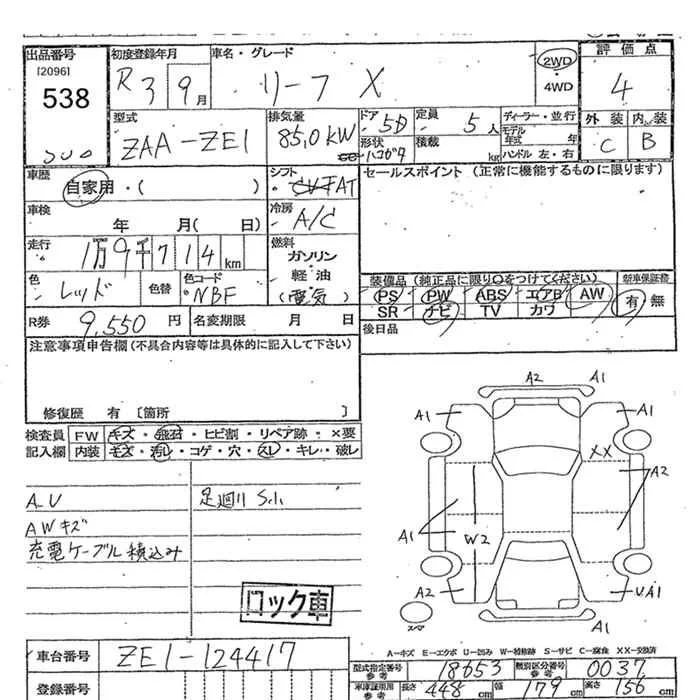 出品番号
[2096]
538
初度登録年月 R3 9月
車名・グレード リーフ X
2WD・4WD
評価点 4
外装 C 内装 B
型式 ZAA-ZE1
排気量 85.0kW
ドア 5D
形状 ハコガタ
定員 5人
積載 kg
ディーラー・並行
モデル年式 年
ハンドル 左・右
車歴 自家用・( )
シフト AT
セールスポイント (正常に機能するものに限ります)
車検 年 月( 日)
冷房 A/C
走行 1万9千714km
燃料 ガソリン 軽油 (電気)
色 レッド
色替
色コード NBF
装備品 (純正品に限り○をつけてください)
新車保証書
PS PW ABS エアB AW 有 無
SR ナビ TV カワ
R券 9,550円
名変期限 月 日
後日品
注意事項申告欄(不具合内容等は具体的に記入して下さい)
修復歴 有 [箇所 ]
検査員記入欄
FW キズ・飛石・ヒビ割・リペア跡・×要
内装 キズ・汚れ・コゲ・穴・スレ・キレ・破レ
A U
AWキズ
充電ケーブル積込み
足廻り
ロック車
A2 A1
A1 A1
XX
A2
A1
W2
A2 UA1
A1
スペア
A-キズ E-エクボ U-凹み W-補修跡 S-サビ C-腐食 XX-交換済
車台番号 ZE1-124417
型式指定番号 参考 18653
類別区分番号 参考 0037
登録番号
車庫証明用 参考 長さ 448cm 幅 179cm 高さ 156cm